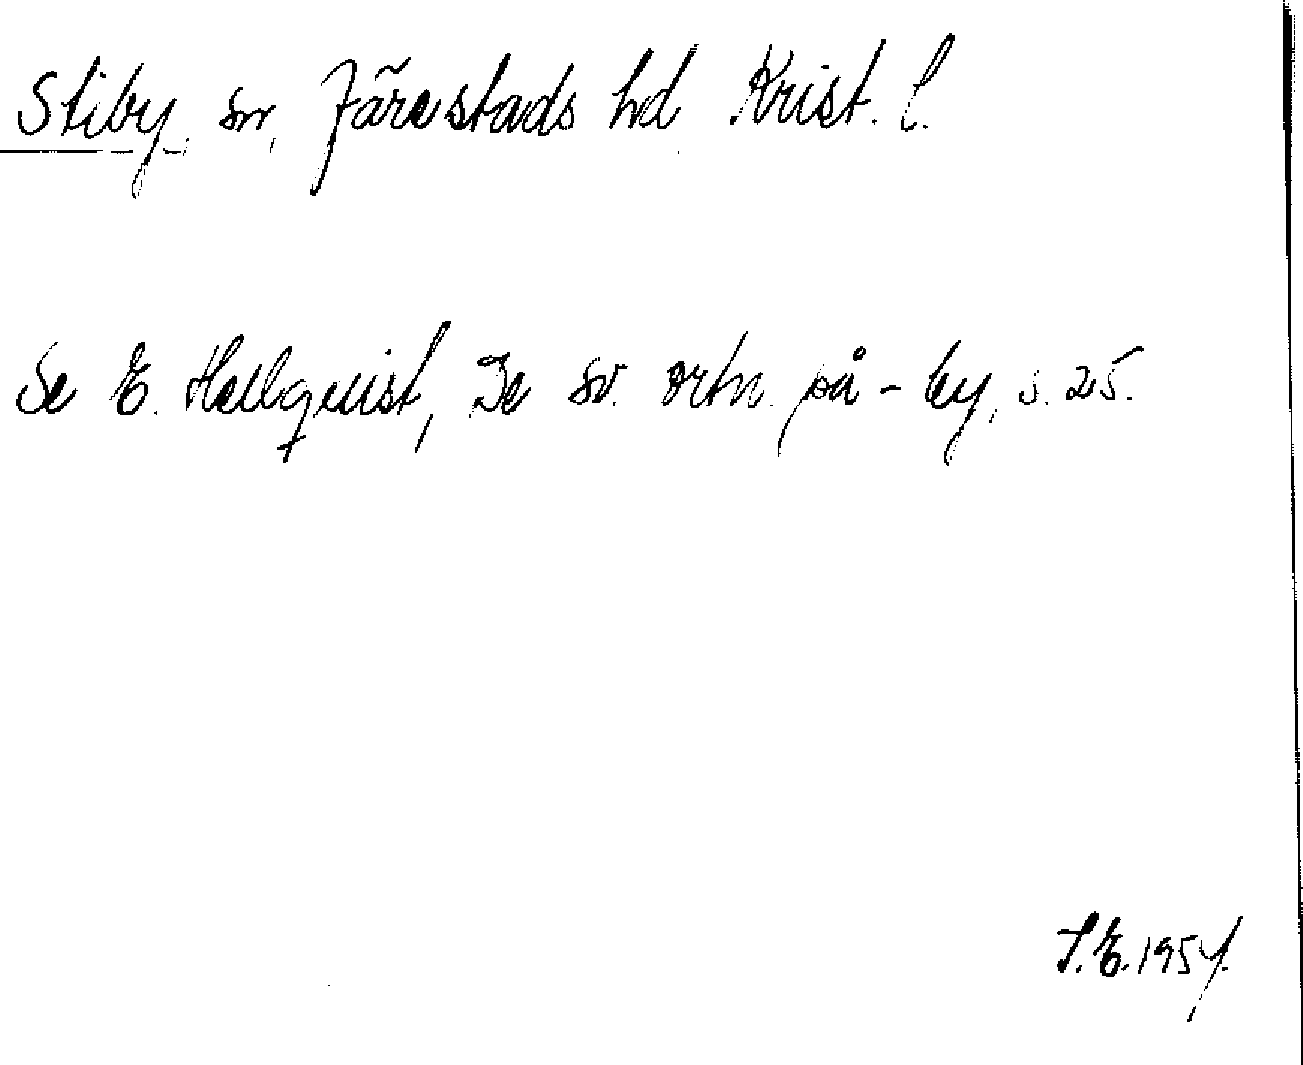 Stiby, sn, Järestads hd Krist. l.
Se E. Hellquist, De sv. ortn. på -by, s. 25.
S.E. 1954.